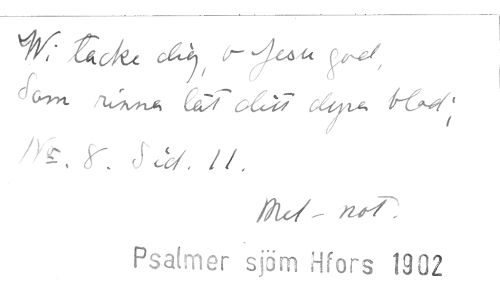 Wi tacke dig, o Jesu god,
Som rinna lät ditt dyra blod;
No. 8. Sid. 11.
Mel-not.
Psalmer sjöm Hfors 1902